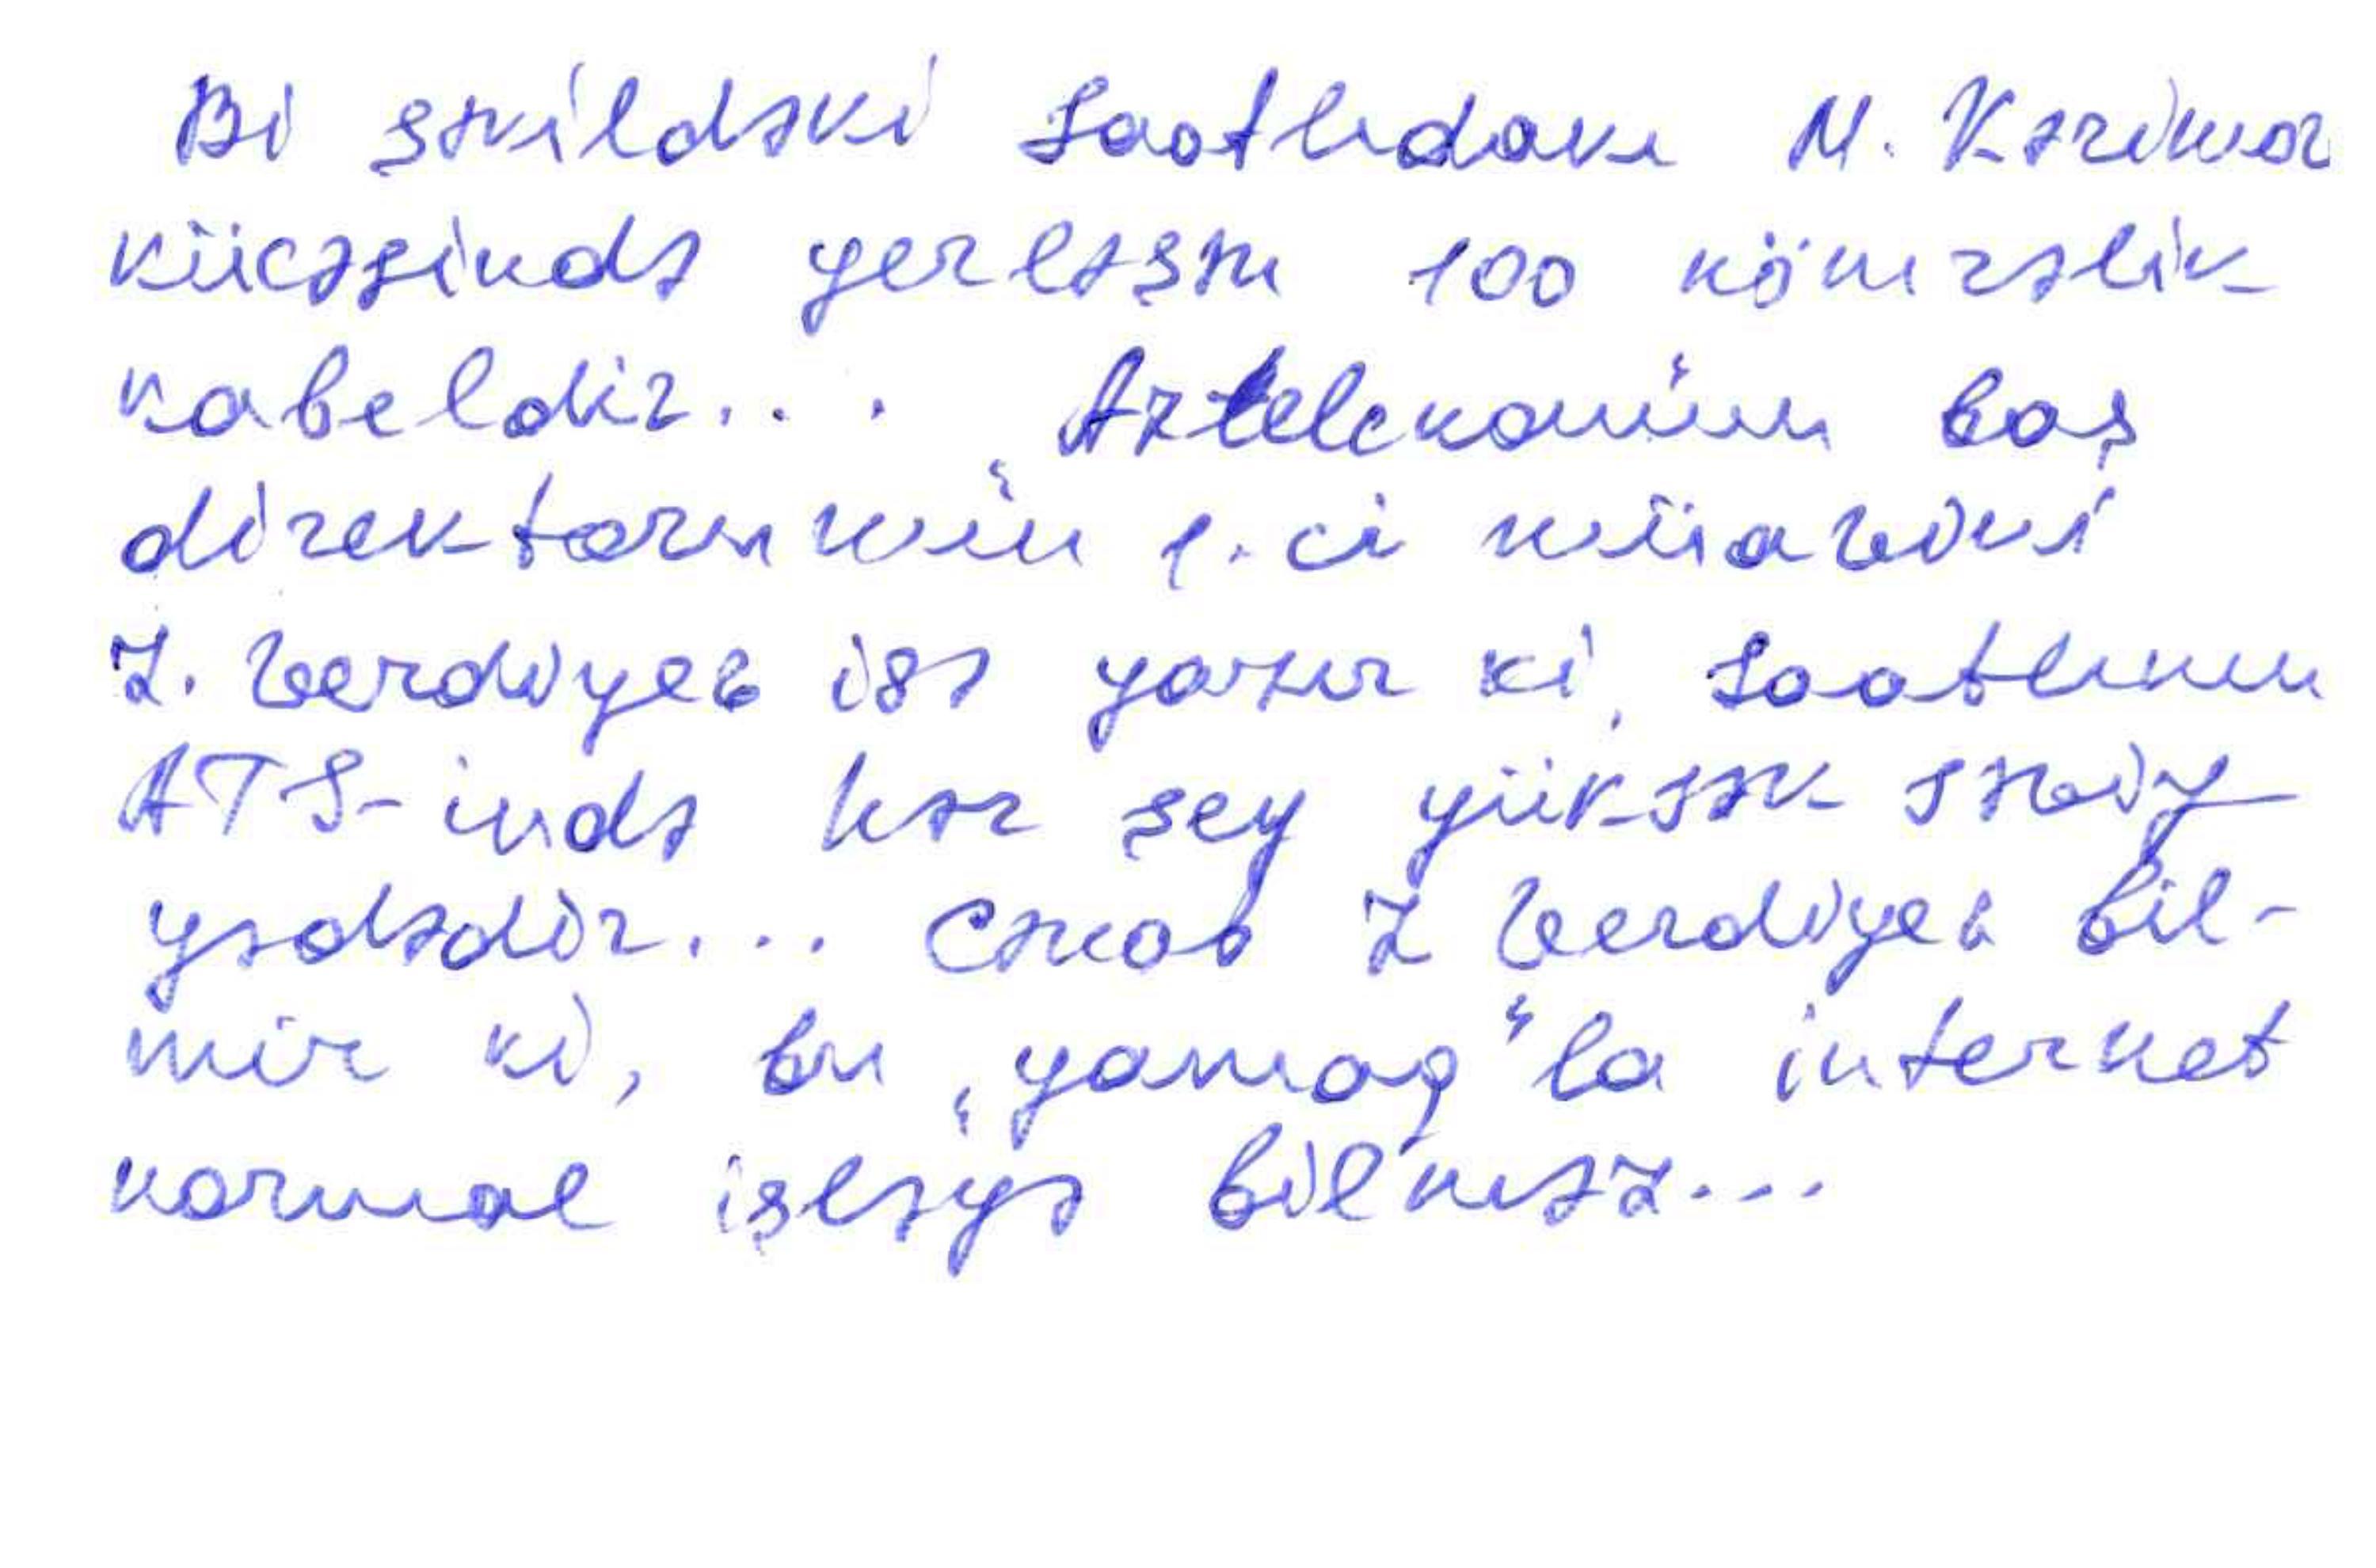 Bi şəkildəki Saatlıdakı M. Kərimov
küçəsində yerləşən 100 nömrəlik
kabeldir... "Aztelekomun" baş
direktorunun 1.ci müavini
Z. Verdiyev isə yazır ki, Saatlının
ATS-ində hər şey yüksək səviy
yədədir... Cənab Z Verdiyev bil-
mir ki, bu "yamaq"la internet
normal işləyə bilməz...